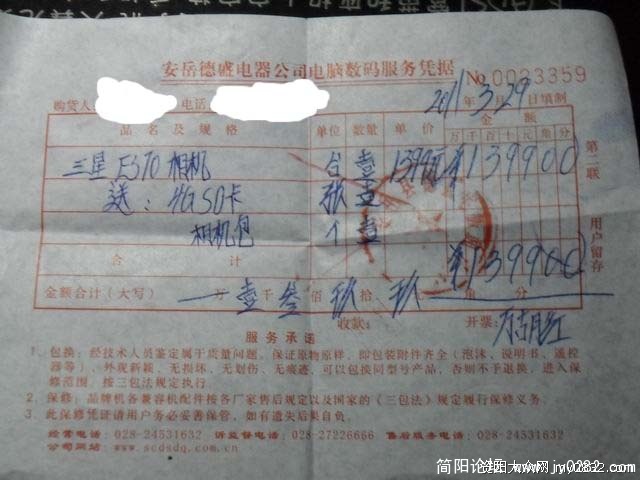 安岳德盛电器公司电脑数码服务凭据
No 0023359
购货人 电话 2011年3月29日填制
品名及规格 单位 数量 单价 金额
万千百十元角分
三星ES70相机 台 壹 1399元 ¥139900
送:4GSD卡 张 壹
相机包 个 壹
合计 ¥139900
金额合计(大写) 万壹仟叁佰玖拾玖 角 分
收款: 开票:
第二联 用户留存
服务承诺
1、包换:经技术人员鉴定属于质量问题,保证原物原样,即包装附件齐全(泡沫、说明书、遥控
器等),外观新颖、无损坏、无划伤、无痕迹,可以包换同型号产品,否则不予退换,进入保
修范围,按三包法规定执行
2、保修:品牌机备兼容机配件按各厂家售后规定以及国家的《三包法》规定履行保修义务。
3、此保修凭证请用户务必妥善保管,如有遗失后果自负。
经营电话:028-24531632 诉监督电话:028-27226666 售后服务电话:028-24531632
公司网站:www.scdsdq.com.cn